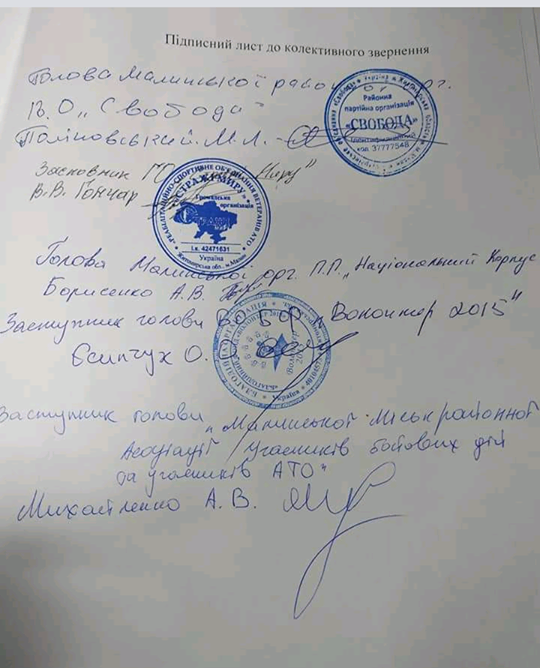 Підписний лист до колективного звернення
Голова Малинської район орг.
В.О „Свобода"
Поліновський М.Л.
Районна
партійна організація
«СВОБОДА»
Ідентифікаційний
код 37777548
Засновник ГО Миру"
В.В. Гончар
СТРАЖ МИРУ
Громадська
організація
і.к. 42471631
Україна
Житомирська обл., м.Малин
Голова Малинської орг. П.П. „Національний Корпус
Борисенко А.В.
Заступник голови БО Волонтер 2015"
Єсипчук О.
БЛАГОДІЙНА ОРГАНІЗАЦІЯ
Україна
Заступник голови „Малинської Міськрайонної
Асоціації Учасників бойових дій
та учасників АТО"
Михайленко А.В.